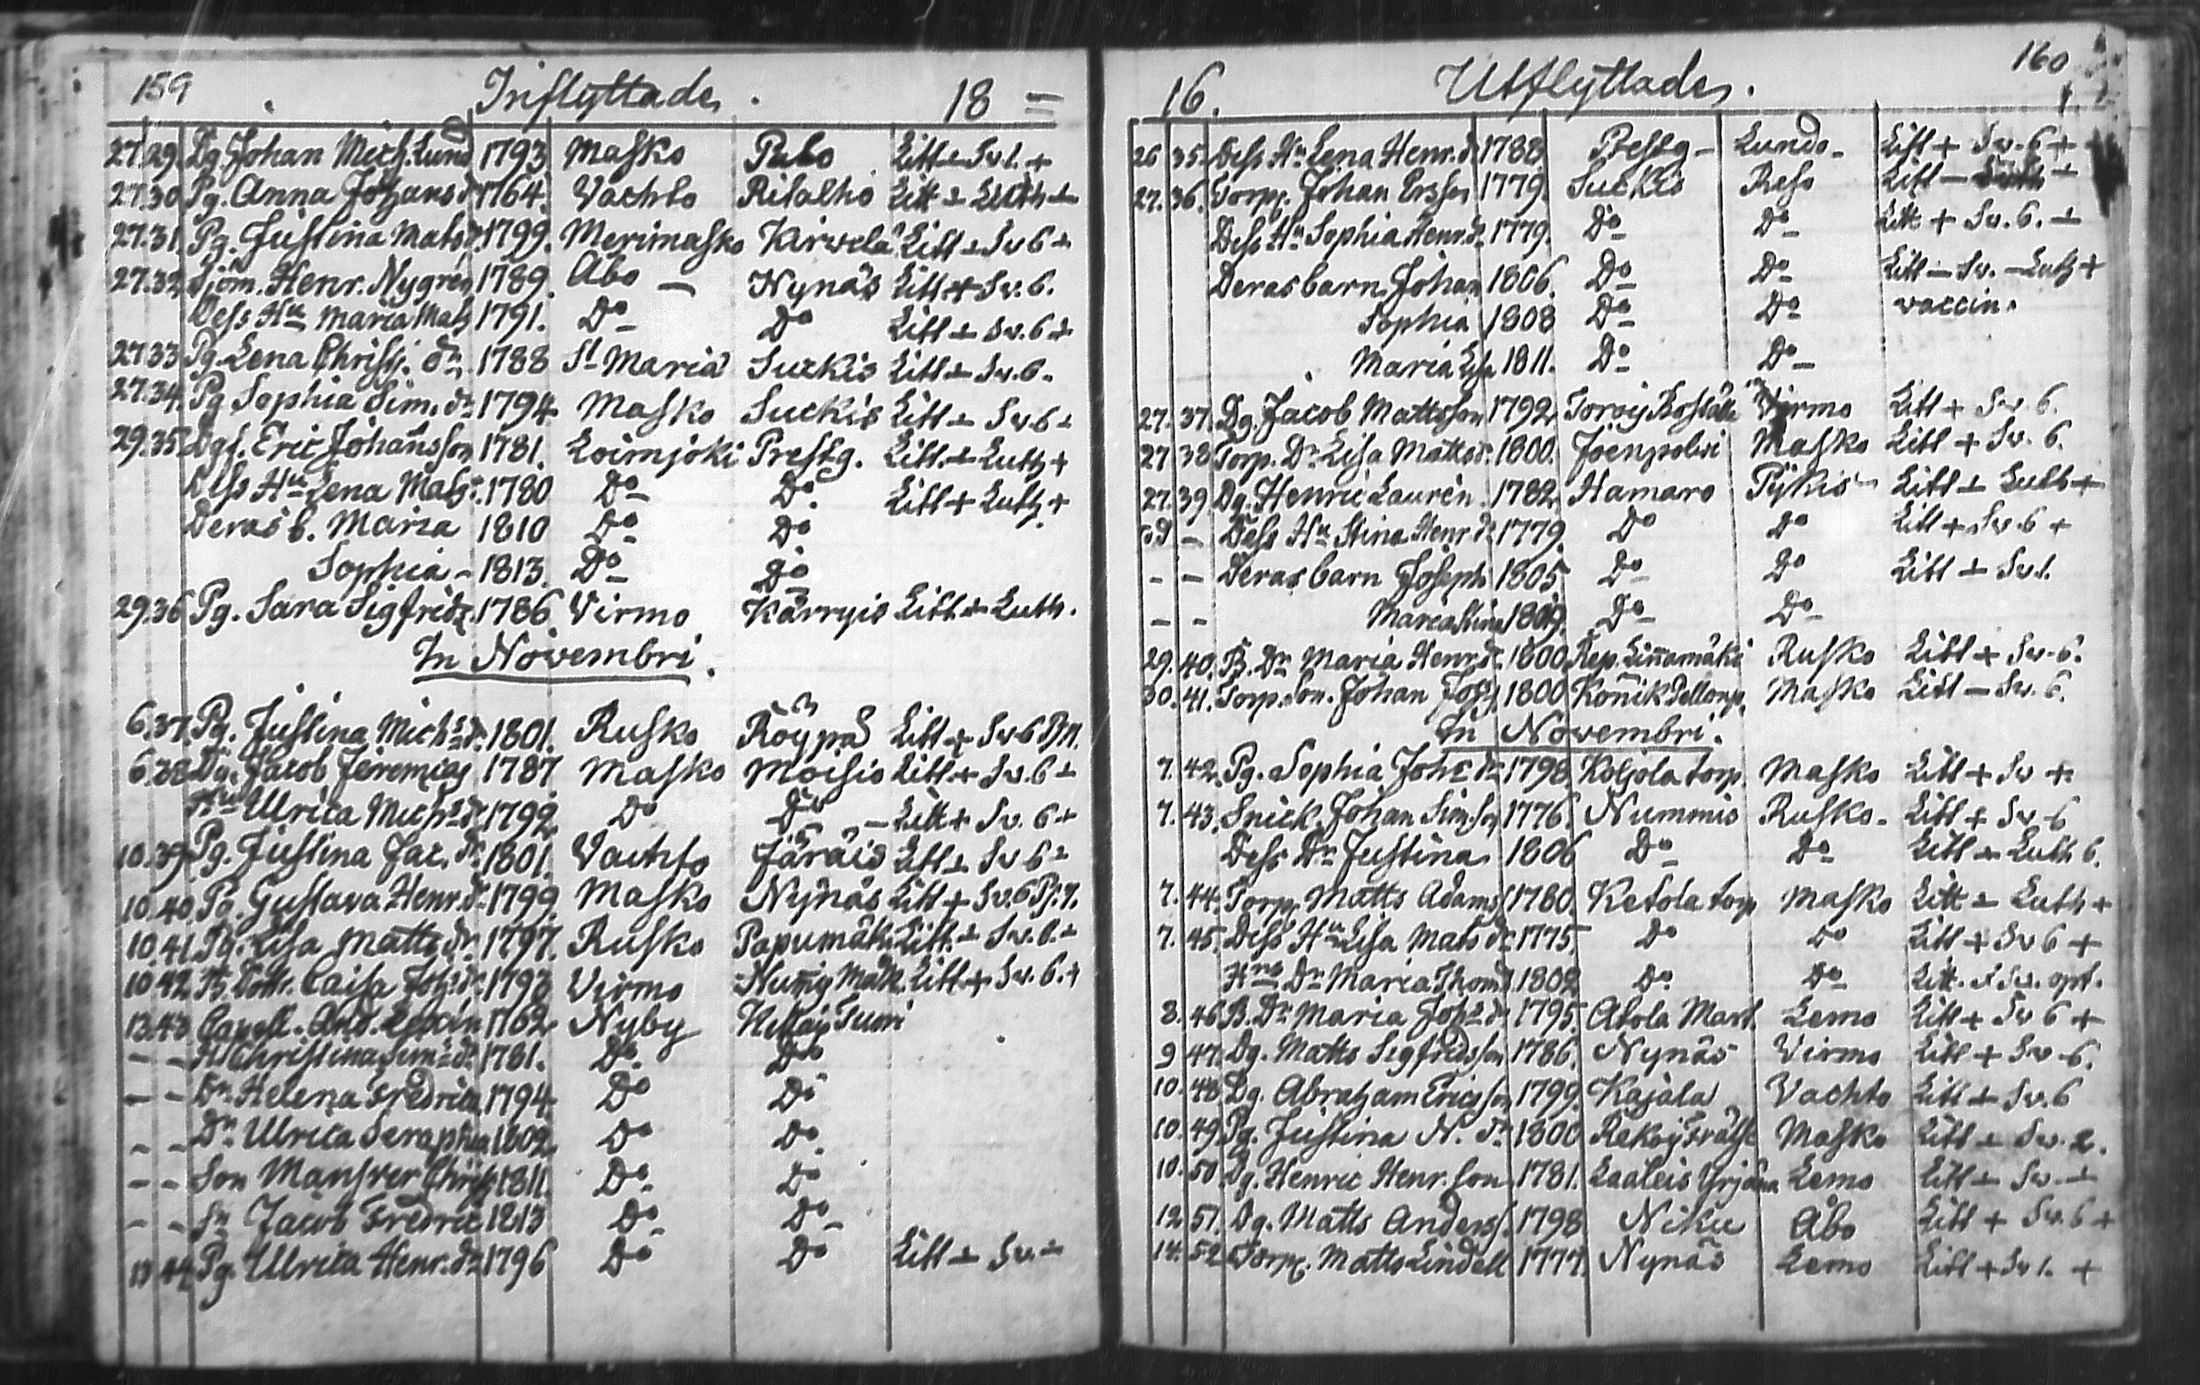 159 Inflyttade. 18 =
27. 29. Dg. Johan Mich. Lund 1793 Masko Palo Litt + Sv. 1. +
27. 30 Pg. Anna Johansdr 1764. Vachto Ritalho Litt + Luth +
27. 31. Pg. Justina Matsdr 1799. Merimasko Kirvela Litt + Sv 6 +
27. 32 Sjöm. Henr. Nygren 1789. Åbo — Nynäs Litt + Sv. 6.
Dess Hu Maria Mats 1791. Do Do Litt + Sv. 6 +
27 33 Pg. Lena Christ. dr 1788 St Maria Suckis Litt + Sv. 6.
27. 34. Pg Sophia Sim. dr 1794 Masko Suckis Litt + Sv. 6 +
29. 35 Eric Johansson 1781. Loimjoki Prestg. Litt. + Luth +
Dess Hu Lena Mats. 1780 Do Do. Litt + Luth +
Deras b. Maria 1810 Do Do
Sophia - 1813. Do Do
29. 36 Pg. Sara Sigfrids. 1786 Virmo Kärryis Litt + Luth.
In Novembri.
6. 37. Pg. Justina Michsdr. 1801. Rusko Röypä Litt + Sv 6
6. 38 Dg. Jacob Jeremias 1787 Masko Moisio Litt + Sv. 6 +
Hu Ulrica Michsdr 1792. Do Do — Litt + Sv. 6 +
10. 39 Pg. Justina Jac. dr 1801. Vachto Järäis Litt + Sv 6 +
10. 40 Pg. Gustava Henr. dr 1799. Masko Nynäs Litt + Sv. 6
10. 41 Pg. Lisa Matts dr 1797. Rusko Papumäki Litt. + Sv. 6. +
10 42 B. Dottr. Caisa Johsdr 1793 Virmo Litt + Sv. 6. +
13. 43 Capell. And. 1762 Nyby
— — H. Christina Sims dr 1781. Do. Do
— — Dr Helena Fredrica 1794 Do Do
— — Dr Ulrica Seraphia 1802 Do Do.
— — Son Christ 1811. Do. Do
— — Sn Jacob Fredric 1813 Do Do —
13 44 Pg. Ulrica Henr. dr 1796 Do Do Litt + Sv. +
16. Utflyttade. 160
26 35. Dess Hu Lena Henr. d 1788 Prestg — Lundo — Litt + Sv. 6 +
27. 36. Torp. Johan Ersson 1779. Suckis Reso Litt —
Dess Hu Sophia Henr. d 1779. Do Do Litt + Sv. 6. +
Deras barn Johan 1806. Do Do Litt — Sv. — Luth +
Sophia 1808 Do Do vaccin.
Maria Lisa 1811. Do Do
27. 37. Dg. Jacob Mattsson 1792 Virmo Litt + Sv. 6.
27 38 Torp. Dr Lisa Mattsdr. 1800. Joenpolvi Masko Litt + Sv. 6.
27. 39 Dg. Henric Laurén 1782 Hamaro Pykis — Litt + Luth +
— Dess Hu Stina Henr. dr 1779 Do Do Litt + Sv 6 +
— — Deras barn Joseph 1805 Do Do Litt + Sv 1.
— — Maria Stina 1809. Do Do
29. 40. B. Dr Maria Henr. dr 1800 Rep. Linnamäki Rusko Litt + Sv. 6.
30. 41. Torp. Son. Johan Joh. 1800 Konik Masko Litt — Sv. 6.
In Novembri.
7. 42. Pg. Sophia Johs dr 1798 Koljola torp Masko Litt + Sv +
7. 43. Snick. Johan Simson 1776. Nummis Rusko — Litt + Sv 6
Dess Dr Justina 1806 Do Do Litt + Luth 6.
7. 44. Torp. Matts Adams 1780. Ketola torp Masko Litt + Luth +
7. 45. Dess Hu Lisa Mats dr 1775 Do Do Litt + Sv 6 +
Hrs Dr Maria Thom. 1802 Do Do Litt. + Sv. opt.
8. 46 B. Dr Maria Johs dr 1795. Atola Mart. Lemo Litt + Sv 6 +
9 47. Dg. Matts Sigfridsson 1786. Nynäs Virmo Litt + Sv. 6.
10. 48 Dg. Abraham Ericsson 1799. Kajala Vachto Litt + Sv. 6
10. 49 Pg. Justina N. dr 1800 Masko Litt + Sv. 2.
10. 50 Dg. Henric Henr. Son 1781. Laaleis Yrjäna Lemo Litt + Sv. +
12 51. Dg. Matts Anders. 1798 Niku Åbo Litt + Sv. 6 +
14. 52. Torp. Matts Lindell 1777. Nynäs Lemo Litt + Sv 1. +